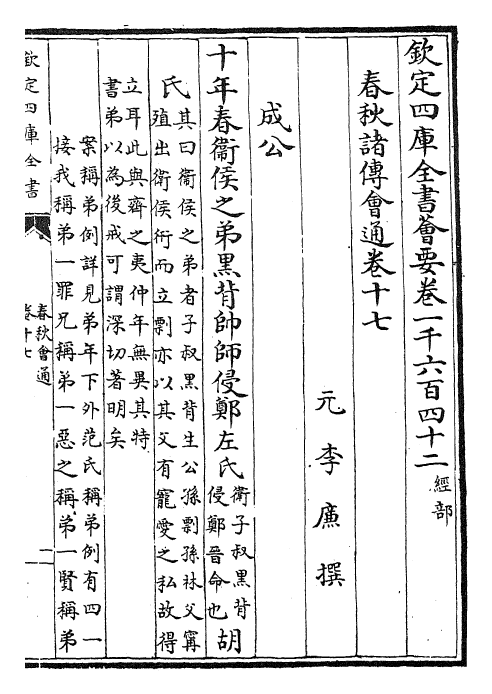 欽定四庫全書薈要卷一千六百四十二 經部
春秋諸傳會通卷十七
元 李廉 撰
成公
十年春衛侯之弟黑背帥師侵鄭左氏衛子叔黑背侵鄭晉命也胡
氏其曰衛侯之弟者子叔黑背生公孫剽孫林父甯殖出衛侯衎而立剽亦以其父有寵愛之私故得
立耳此與齊之夷仲年無異其特書弟以為後戒可謂深切著明矣
案稱弟例詳見弟年下外范氏稱弟例有四一
接我稱弟一罪兄稱弟一惡之稱弟一賢稱弟
欽定四庫全書
春秋會通
卷十七
一